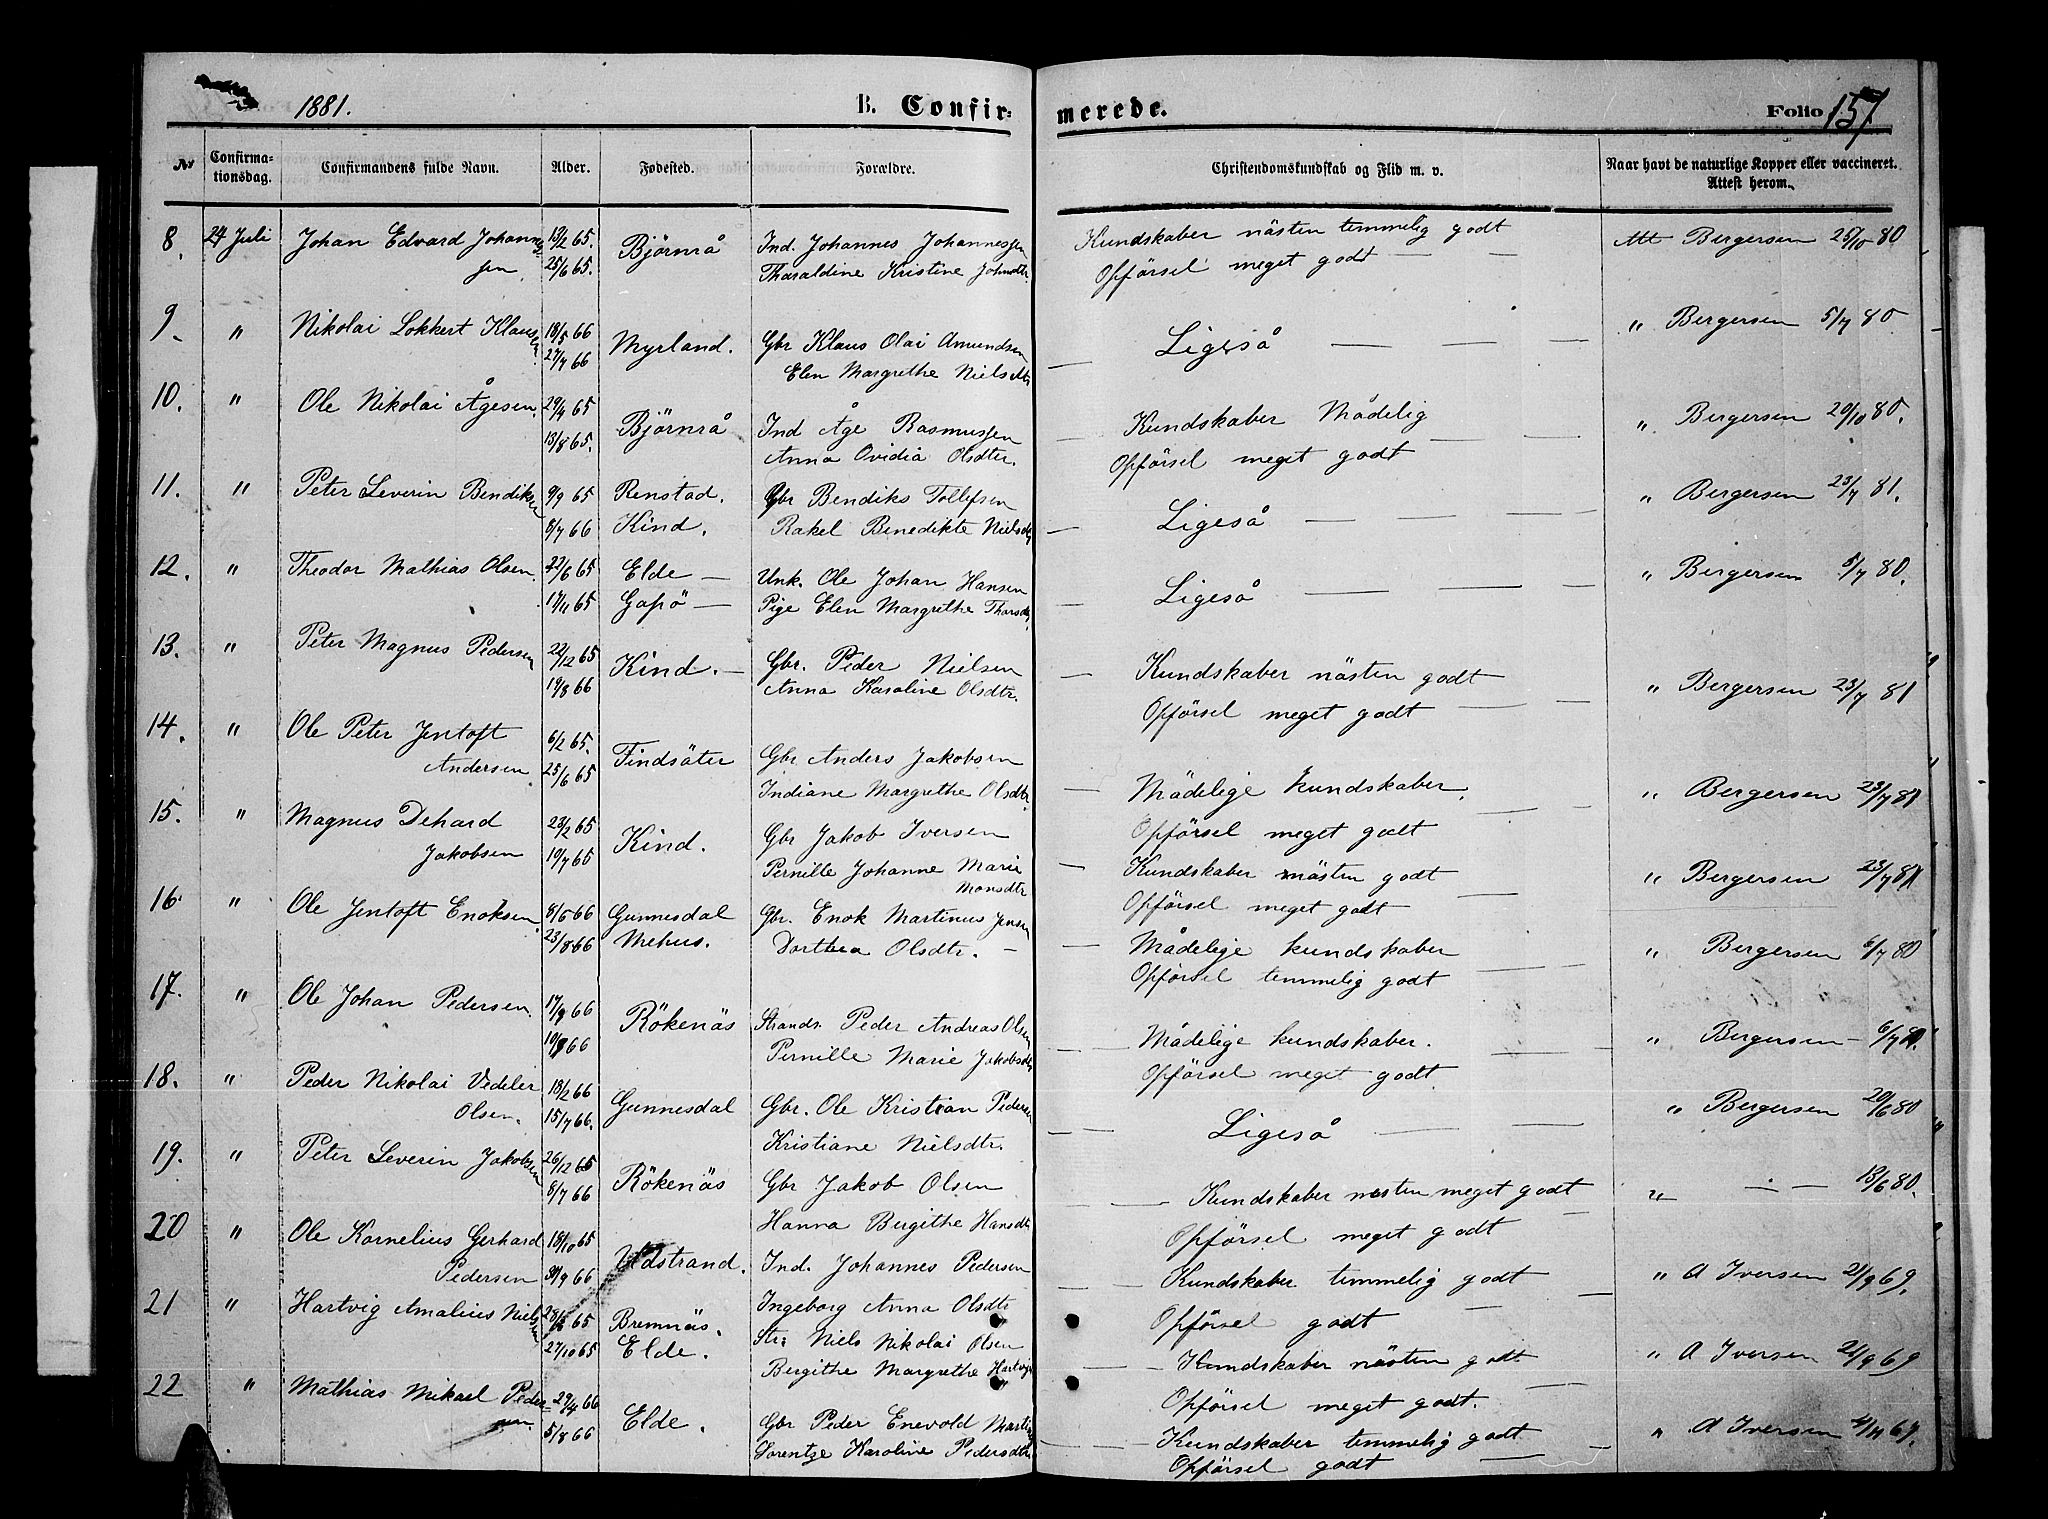 1881.
B. Confir=
merede.
Folio 157
Nr
Confirma-
tionsdag.
Confirmandens fulde Navn.
Alder.
Fødested.
Forældre.
Christendomskundskab og Flid m. v.
Naar havt de naturlige Kopper eller vaccineret.
Attest herom.
8. 24 Juli Johan Edvard Johannes
sen.
13/2 65.
25/6 65.
Björnrå
Ind. Johannes Johannessen
Tharaldine Kristine Johnsdtr.
Kundskaber nästen temmelig godt
Opförsel meget godt — —
Att Bergersen 25/10 80
9. " Nikolai Lokkert Klausen.
18/5 66
27/7 66
Myrland.
Gbr Klaus Olai Amundsen
Elen Margrethe Nielsdtr
— Ligeså — — —
" Bergersen 5/7 80.
10. " Ole Nikolai Ågesen.
29/4 65
13/8 65.
Björnrå
Ind Åge Rasmussen
Anna Ovidia Olsdtr.
— Kundskaber Mådelig
Opförsel meget godt — —
" Bergersen 20/10 80.
11. " Peter Severin Bendiksen
9/9 65
8/7 66
Renstad.
Kind.
Gbr Bendiks Tollefsen
Rakel Benedikte Nielsdtr
— Ligeså — — —
" Bergersen 23/7 81.
12. " Theodor Mathias Olsen.
22/6 65
17/11 65
Elde —
Gapö —
Unk. Ole Johan Hansen
Pige Elen Margrethe Tharsdtr
— Ligeså — — —
" Bergersen 5/7 80.
13. " Peter Magnus Pedersen
22/12 65
19/8 66
Kind. —
Gbr. Peder Nielsen
Anna Karoline Olsdtr.
— Kundskaber nästen godt
Opförsel meget godt — —
" Bergersen 23/7 81
14. " Ole Peter Jentoft
Andersen
6/2 65.
25/6 65
Findsäter
Gbr Anders Jakobsen
Indiane Margrethe Olsdtr.
— Mådelige kundskaber.
Opförsel meget godt — —
" Bergersen 23/7 81
15. " Magnus Dehard
Jakobsen
23/2 65
10/7 65
Kind.
Gbr Jakob Iversen
Pernille Johanne Marie
Monsdtr
— Kundskaber nästen godt
Opförsel meget godt —
" Bergersen 23/7 81
16. " Ole Jentoft Enoksen.
8/5 66
23/8 66
Gunnesdal
Mehus.
Gbr. Enok Martinus Jensen
Dorthea Olsdtr. —
— Mådelige kundskaber
Opförsel temmelig godt — —
" Bergersen 6/7 80
17. " Ole Johan Pedersen.
66
66
Rökenäs
Strands. Peder Andreas Olsen
Pernille Marie Jakobsdtr
— Mådelige kundskaber.
Opförsel meget godt. — —
" Bergersen — 6/7
18. " Peder Nikolai Vedeler
Olsen.
18/2 66
15/7 66.
Gunnesdal
Gbr. Ole Kristian Pedersen
Kristiane Nielsdtr.
— Ligeså — — —
" Bergersen 20/6 80
19. " Peter Severin Jakobsen
26/12 65
8/7 66
Rökenäs
Gbr Jakob Olsen
Hanna Birgithe Hansdtr
— Kundskaber nästen meget godt
Opförsel meget godt
" — — 13/6 80.
20 " Ole Kornelius Gerhard
Pedersen
18/10 65
9/9 66
Vedstrand.
Ind. Johannes Pedersen
Ingeborg Anna Olsdtr
— Kundskaber temmelig godt —
Opförsel godt —
" A Iversen 21/9 69.
21 " Hartvig Amalius Nielsen
65
27/10 65
Bremnäs.
Elde.
Str: Niels Nikolai Olsen
Bergithe Margrethe Hartvigs
— Kundskaber nästen godt.
Opförsel meget godt. —
" A Iversen 21/9 69
22 " Mathias Mikael Peder=
sen
29/4 66
5/8 66
Elde.
Gbr Peder Enevold Martins
Lorentze Karoline Pedersdtr
— Kundskaber temmelig godt —
Opförsel godt —
" A Iversen 4/11 69.